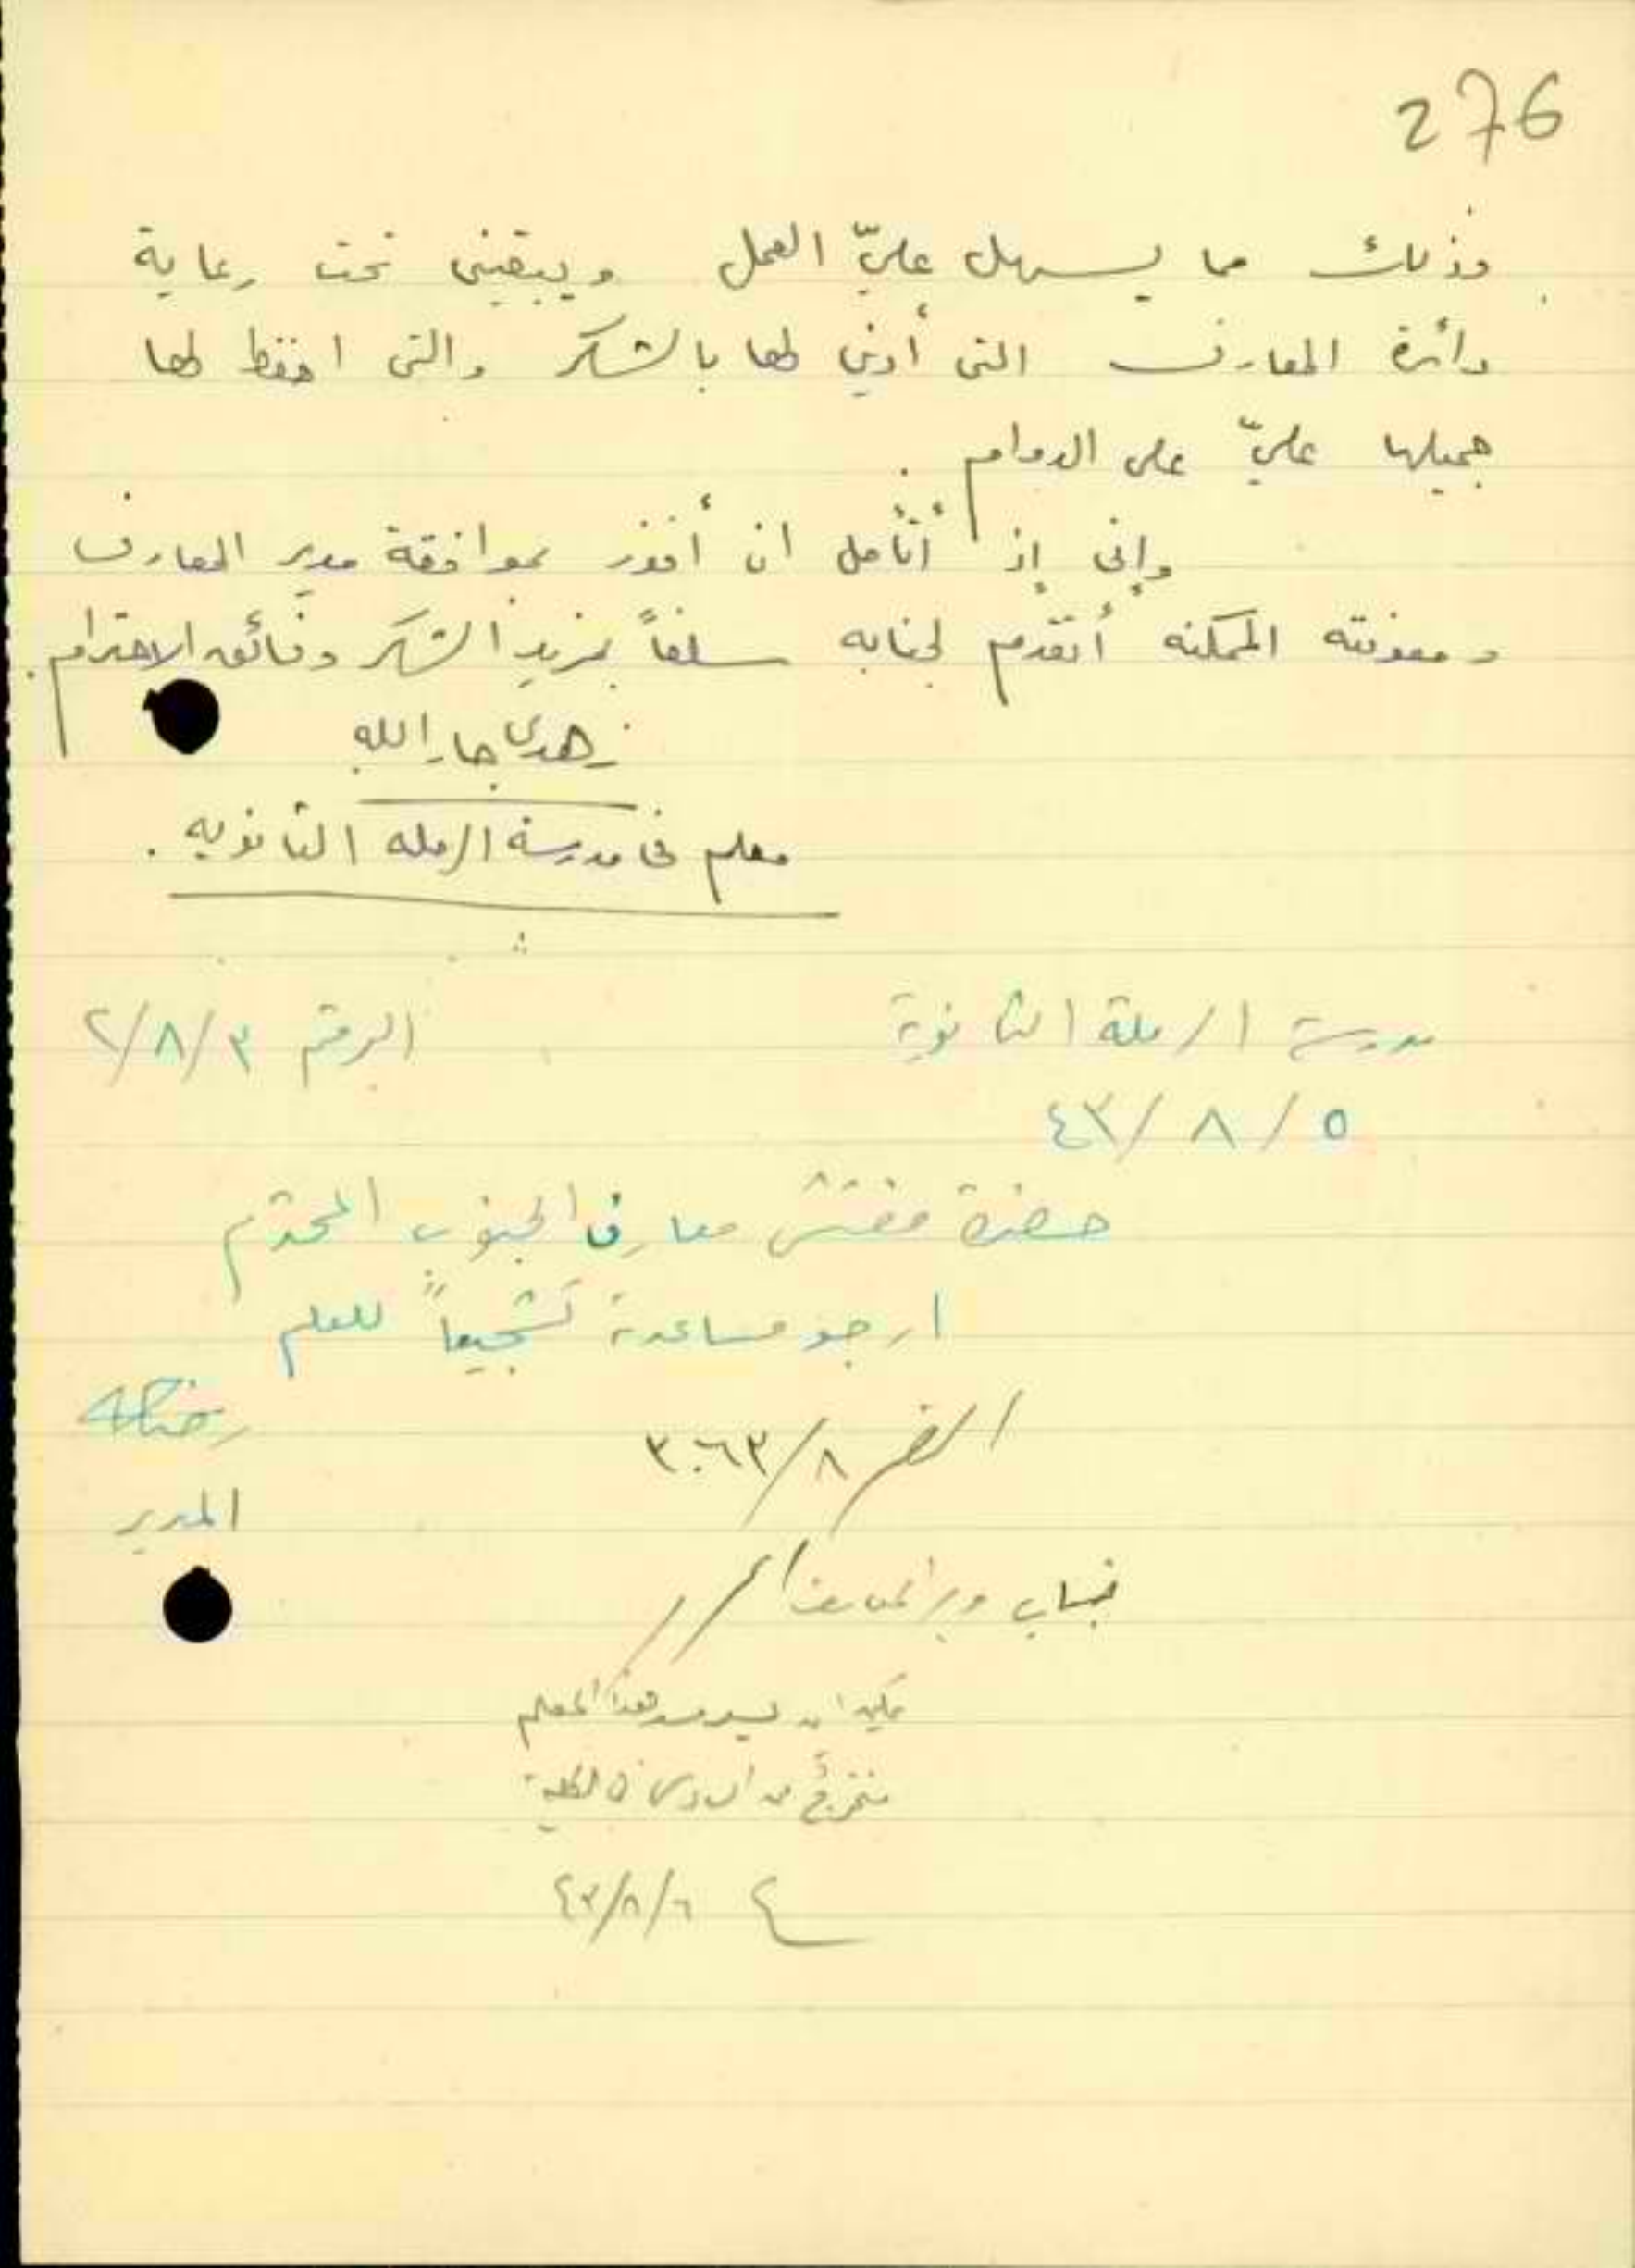 276
وذلك مما يسهل عليّ العمل ويبقيني تحت رعاية
دائرة المعارف التي أدين لها بالشكر والتي احفظ لها
جميلها عليّ على الدوام .
وإني إذ أتأمل ان أفوز بموافقة مدير المعارف
ومعونته الممكنه أتقدم لجنابه سلفاً بمزيد الشكر وفائق الاحترام .
زهدي جار الله
معلم في مدرسة الرمله الثانويه .
مدرسة الرملة الثانوية الرقم ٢/٨/٣
٤٣/٨/٥
حضرة مفتش معارف الجنوب المحترم
ارجو مساعدته تشجيعاً للعلم
المدير
٣٠٦٣/٨
جناب مدير المعارف
يمكن ان هذا المعلم
في الكلية
٤٣/٨/٦